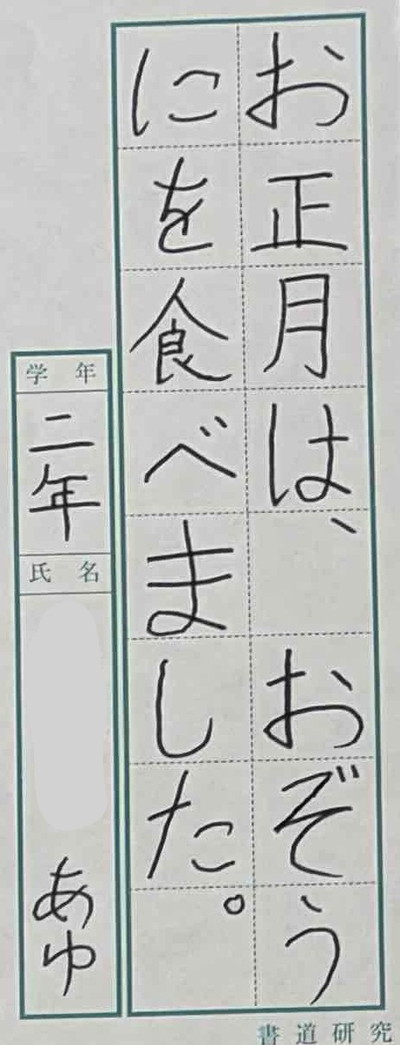 お正月は、おぞう
にを食べました。
学年
二年
氏名
あゆ
書道研究